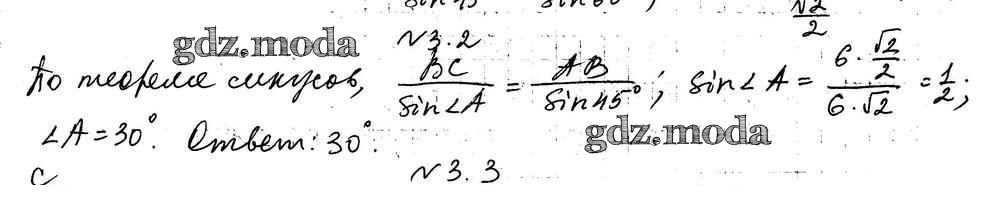 sin45 sin60 ; √2/2
gdz.moda
№3.2
По теореме синусов, BC/sin∠A = AB/sin45°; sin∠A = (6·√2/2)/(6·√2) = 1/2;
∠A=30°. Ответ: 30°.
gdz.moda
№3.3